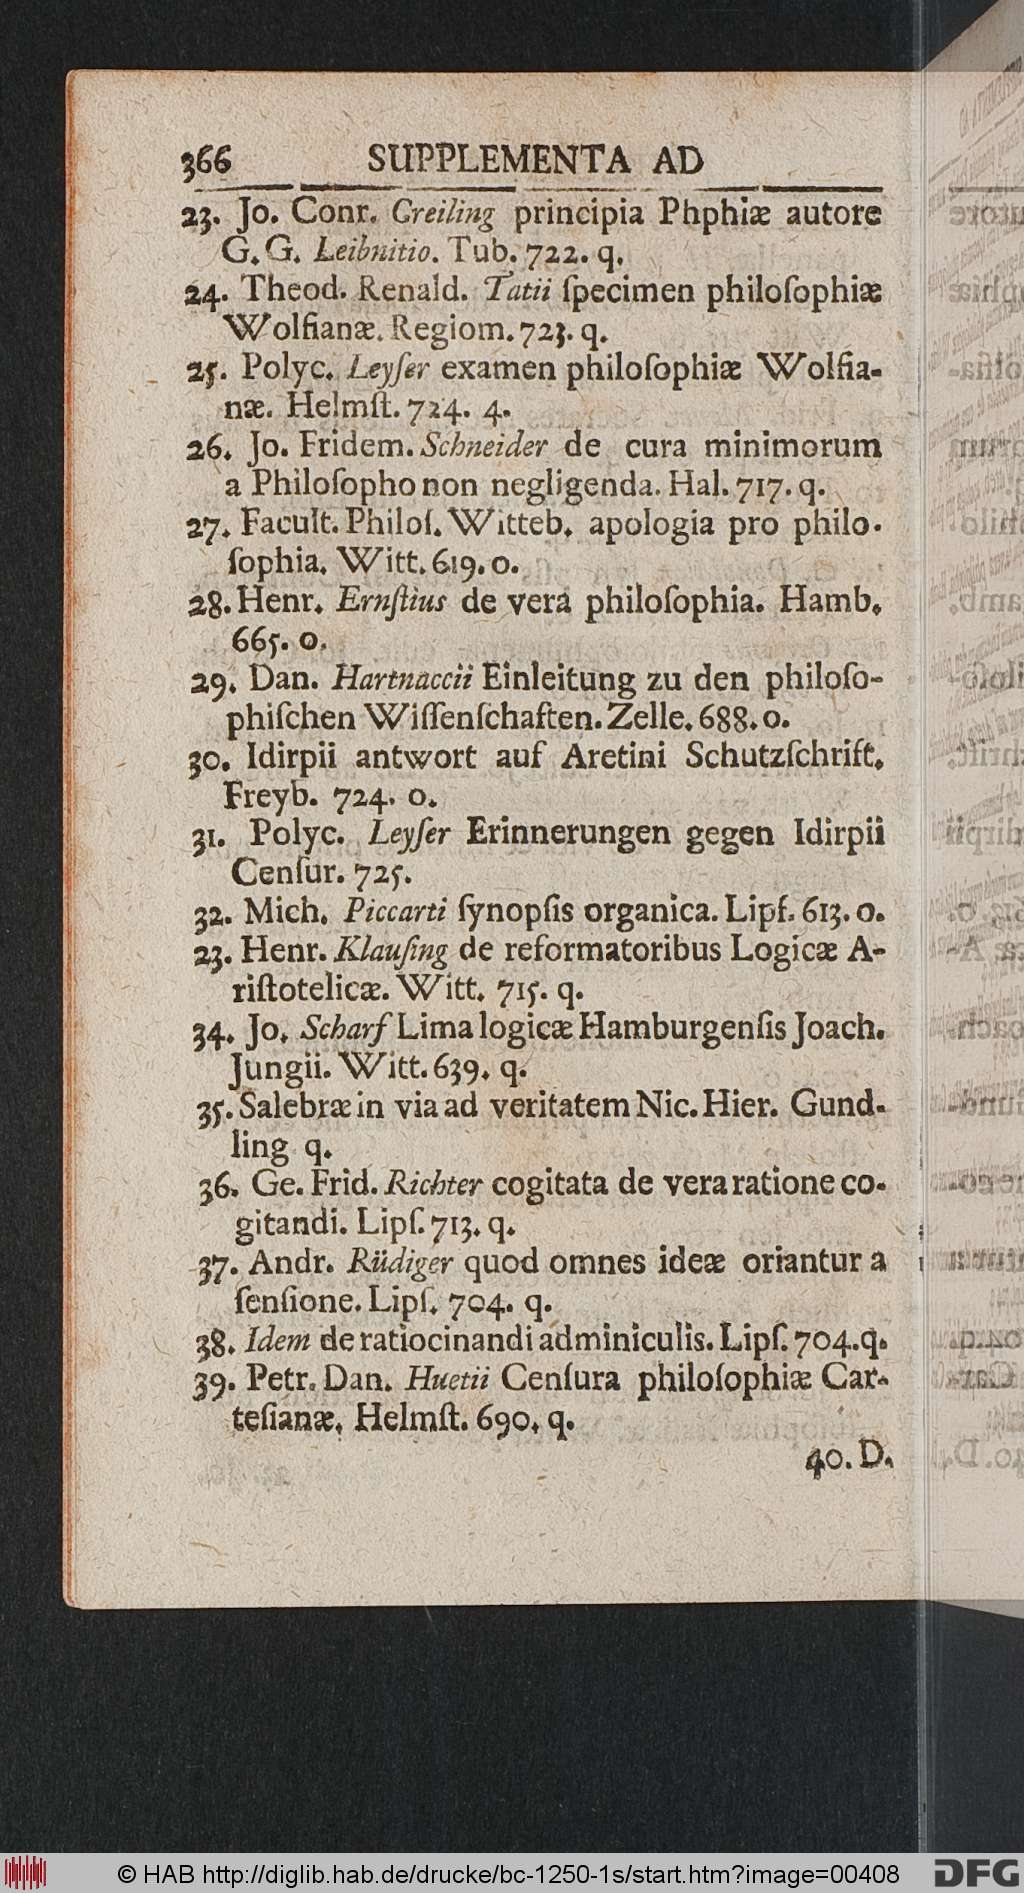 366 SUPPLEMENTA AD
23. Jo. Conr. Creiling principia Phphiæ autore
G. G. Leibnitio. Tub. 722. q.
24. Theod. Renald. Tatii ſpecimen philoſophiæ
Wolfianæ. Regiom. 723. q.
25. Polyc. Leyſer examen philoſophiæ Wolfia-
næ. Helmſt. 724. 4.
26. Jo. Fridem. Schneider de cura minimorum
a Philoſopho non negligenda. Hal. 717. q.
27. Facult. Philoſ. Witteb. apologia pro philo-
ſophia. Witt. 619. o.
28. Henr. Ernſtius de vera philoſophia. Hamb.
665. o.
29. Dan. Hartnaccii Einleitung zu den philoſo-
phiſchen Wiſſenſchaften. Zelle. 688. o.
30. Idirpii antwort auf Aretini Schutzſchrift.
Freyb. 724. o.
31. Polyc. Leyſer Erinnerungen gegen Idirpii
Cenſur. 725.
32. Mich. Piccarti ſynopſis organica. Lipſ. 613. o.
23. Henr. Klauſing de reformatoribus Logicæ A-
riſtotelicæ. Witt. 715. q.
34. Jo. Scharf Lima logicæ Hamburgenſis Joach.
Jungii. Witt. 639. q.
35. Salebræ in via ad veritatem Nic. Hier. Gund-
ling q.
36. Ge. Frid. Richter cogitata de vera ratione co-
gitandi. Lipſ. 713. q.
37. Andr. Rüdiger quod omnes ideæ oriantur a
ſenſione. Lipſ. 704. q.
38. Idem de ratiocinandi adminiculis. Lipſ. 704. q.
39. Petr. Dan. Huetii Cenſura philoſophiæ Car-
teſianæ. Helmſt. 690. q.
40. D.
© HAB http://diglib.hab.de/drucke/bc-1250-1s/start.htm?image=00408
DFG